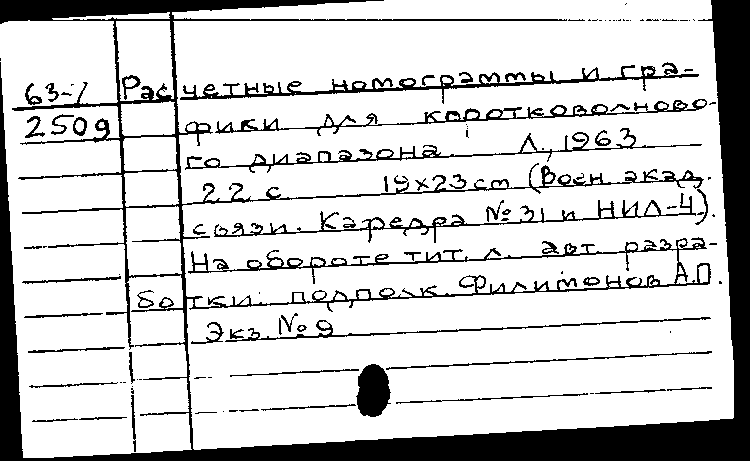 63-7 Расчетные номограммы и гра-
2509 фики для коротковолново-
го диапазона. Л., 1963.
22 с 19x23cm (Воен. акад.
связи. Кафедра № 31 и НИЛ-4).
На обороте тит. л. авт. разра-
ботки: подполк. Филимонов А.П.
Экз. № 9.